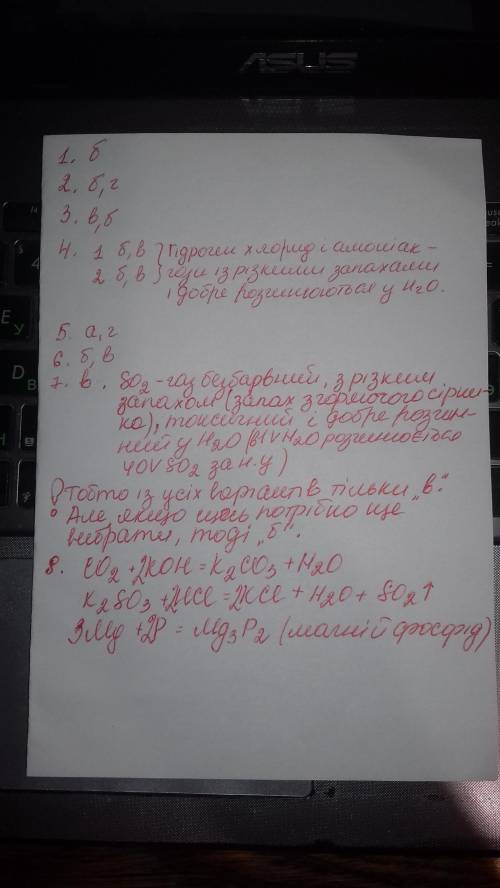 ASUS
1. б
2. б, г
3. в, б
4. 1 б, в } Гідроген хлорид і амоніак -
2 б, в } гази із різкими запахами
і добре розчиняються у H2O.
5. а, г
6. б, в
7. в. SO2 - газ безбарвний, з різким
запахом (запах згорілого сірни-
ка), токсичний і добре розчин-
ний у H2O (в 1V H2O розчиняється
40V SO2 за н.у)
Тобто із усіх варіантів тільки „в".
Але якщо щось потрібно ще
вибрати, тоді „б".
8. CO2 + 2KOH = K2CO3 + H2O
K2SO3 + 2HCl = 2KCl + H2O + SO2↑
3Mg + 2P = Mg3P2 (магній фосфід)